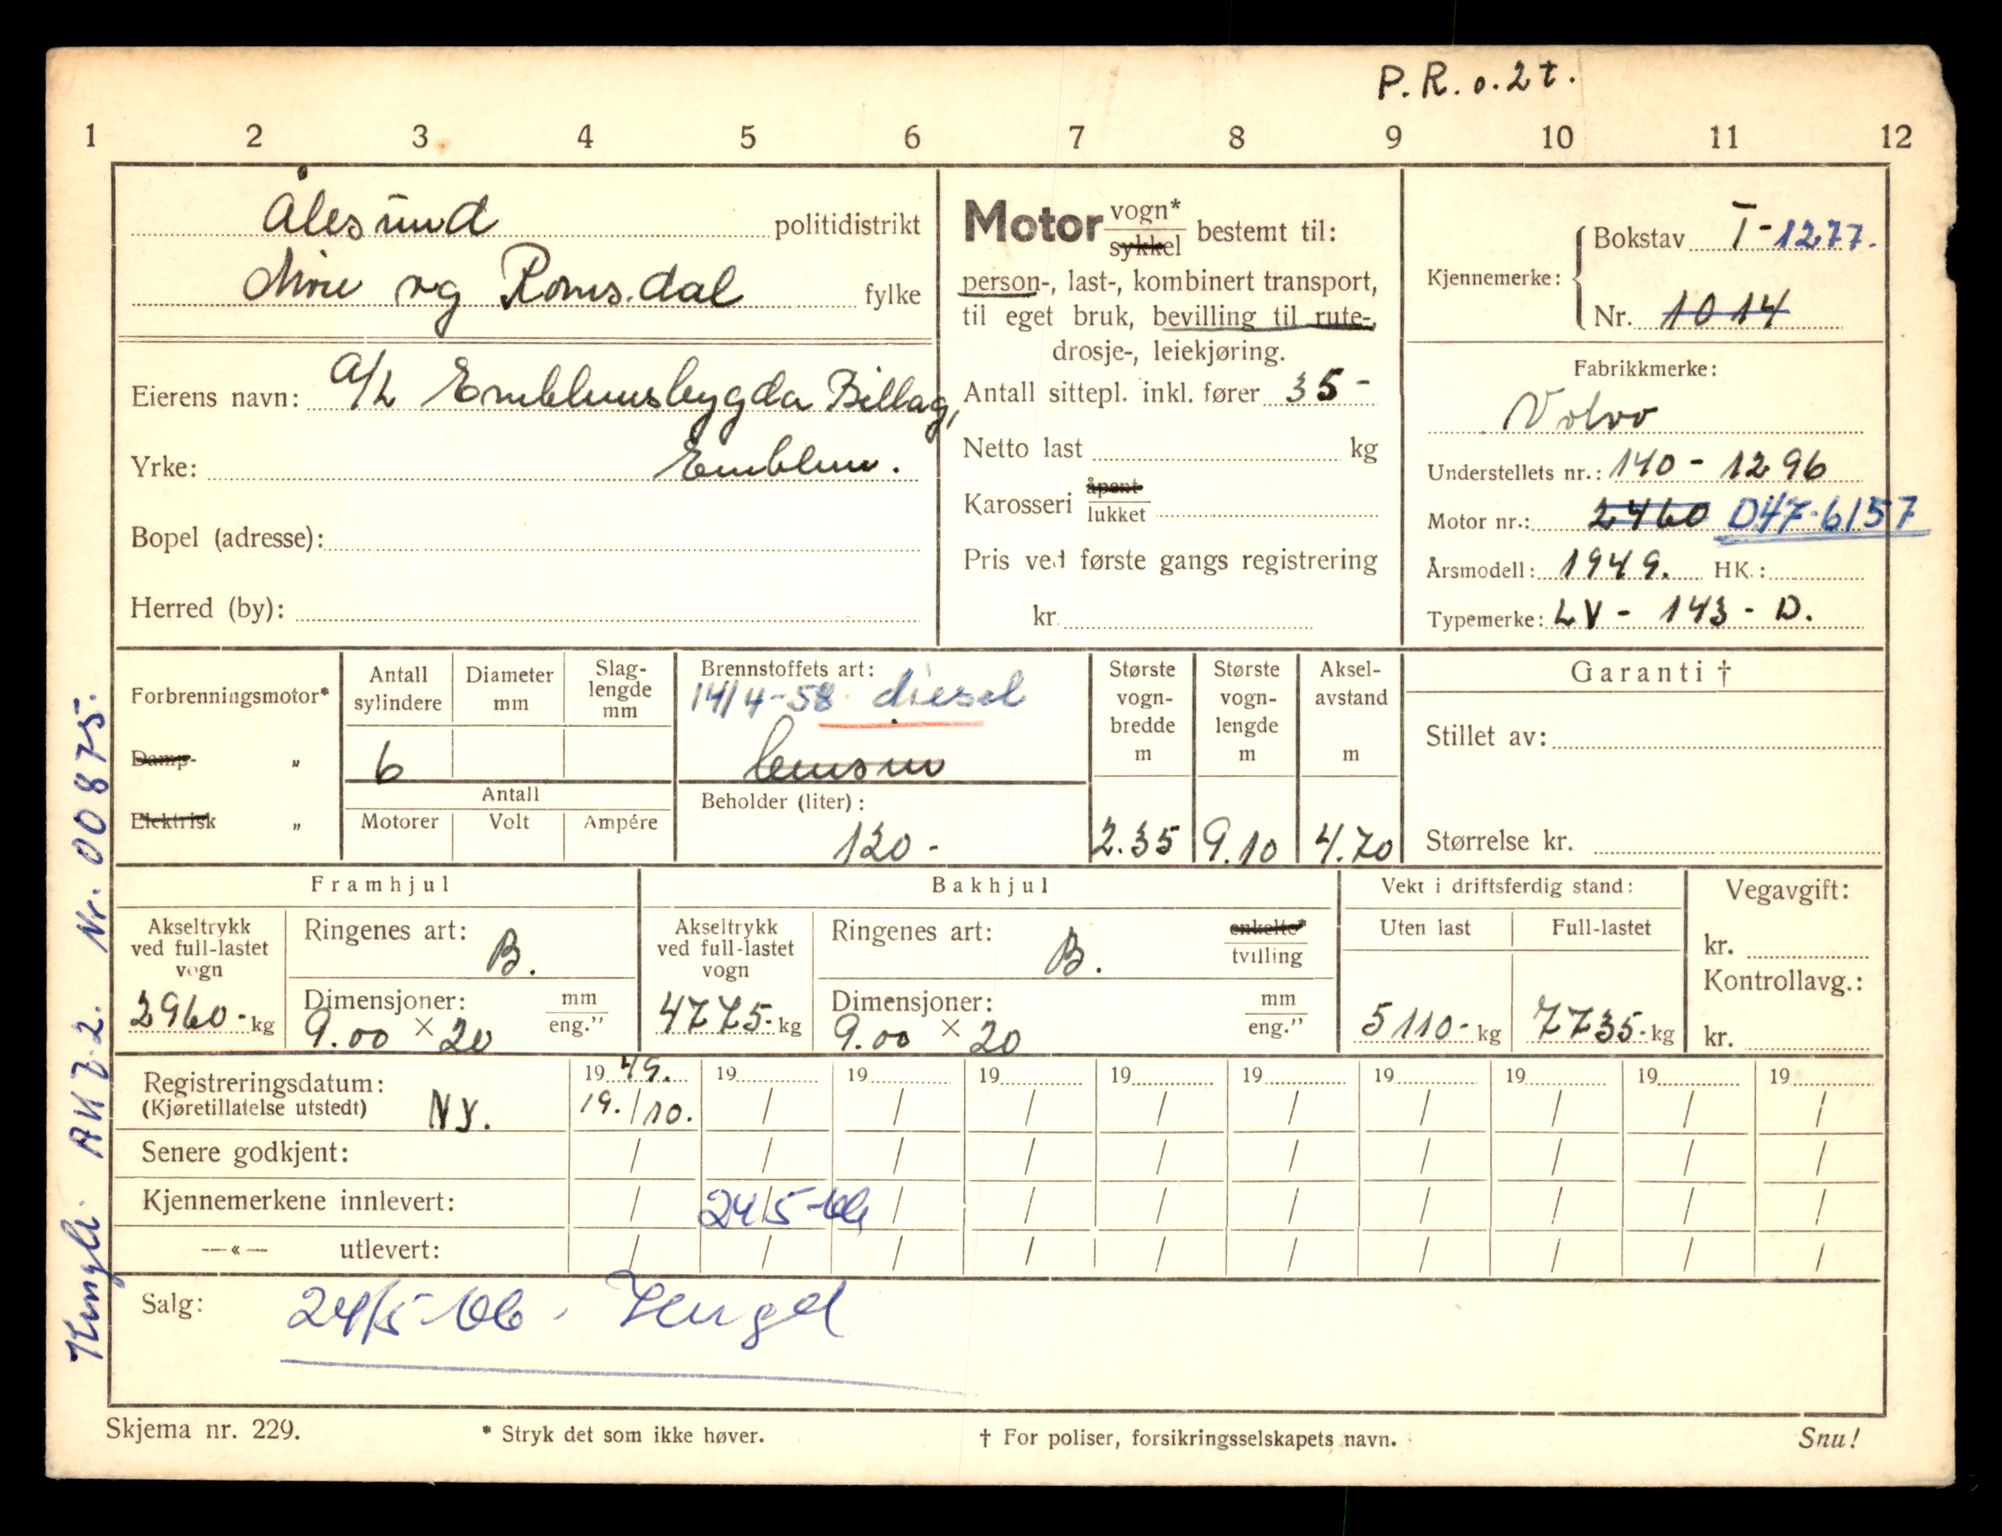 P. R. o. 2 t.
1 2 3 4 5 6 7 8 9 10 11 12
Ålesund politidistrikt
Møre og Romsdal fylke
Eierens navn: A/L Emblemsbygda Billag,
Yrke: Emblem.
Bopel (adresse):
Herred (by):
Motor vogn* sykkel bestemt til:
person-, last-, kombinert transport,
til eget bruk, bevilling til rute-,
drosje-, leiekjøring.
Antall sittepl. inkl. fører 35 -
Netto last kg
Karosseri åpent lukket
Pris ved første gangs registrering
kr.
Kjennemerke: { Bokstav T-1277.
Nr. 1014
Fabrikkmerke:
Volvo
Understellets nr.: 140 - 1296
Motor nr.: 2460 D47-6157
Årsmodell: 1949. HK.:
Typemerke: LV - 143 - D.
Forbrenningsmotor*
Damp- „
Elektrisk „
Antall sylindere
6
Diameter mm
Slag-lengde mm
Antall
Motorer Volt Ampére
Brennstoffets art:
14/4-58. diesel
bensin
Beholder (liter):
120 -
Største vogn-bredde m
2.35
Største vogn-lengde m
9.10
Aksel-avstand m
4.70
Garanti †
Stillet av:
Størrelse kr.
Framhjul
Akseltrykk ved full-lastet vogn
2960- kg
Ringenes art: B.
Dimensjoner: mm eng.”
9.00 × 20
Bakhjul
Akseltrykk ved full-lastet vogn
4775- kg
Ringenes art: B. enkelte* tvilling
Dimensjoner: mm eng.”
9.00 × 20
Vekt i driftsferdig stand:
Uten last Full-lastet
5110- kg 7735- kg
Vegavgift:
kr.
Kontrollavg.:
kr.
Registreringsdatum: 1949. 19 19 19 19 19 19 19 19 19
(Kjøretillatelse utstedt) NY. 19./10. / / / / / / / / /
Senere godkjent: / / / / / / / / / /
Kjennemerkene innlevert: / 24/5-66 / / / / / / / /
—«— utlevert: / / / / / / / / / /
Salg: 24/5-66.
Skjema nr. 229.
* Stryk det som ikke høver.
† For poliser, forsikringsselskapets navn.
Snu!
Nr. 00875.